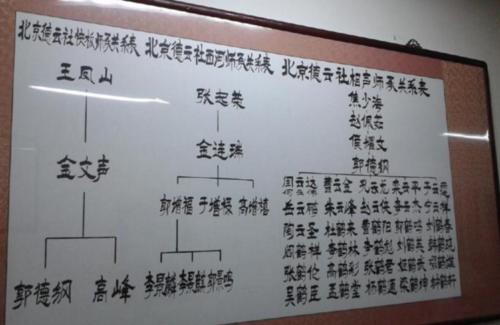 北京德云社快板师承关系表
王凤山
金文声
郭德纲 高峰
北京德云社西河师承关系表
张志荣
金连瑞
郭增福 于增 高增
李景麟 李景 郭景鸣
北京德云社相声师承关系表
焦少海
赵佩茹
侯耀文
郭德纲
云 曹云金 孔云龙 栾云平 于云霆
岳云鹏 朱云峰 赵云侠 李云杰 宁云祥
陶云圣 杜鹤来 曹鹤阳 郭鹤鸣 刘鹤春
阎鹤祥 李鹤林 李鹤彪 刘鹤英 韩鹤
张鹤伦 高鹤彩 张鹤君 鹤武 鹤
吴鹤臣 孟鹤堂 杨鹤通 鹤坤 鹤轩